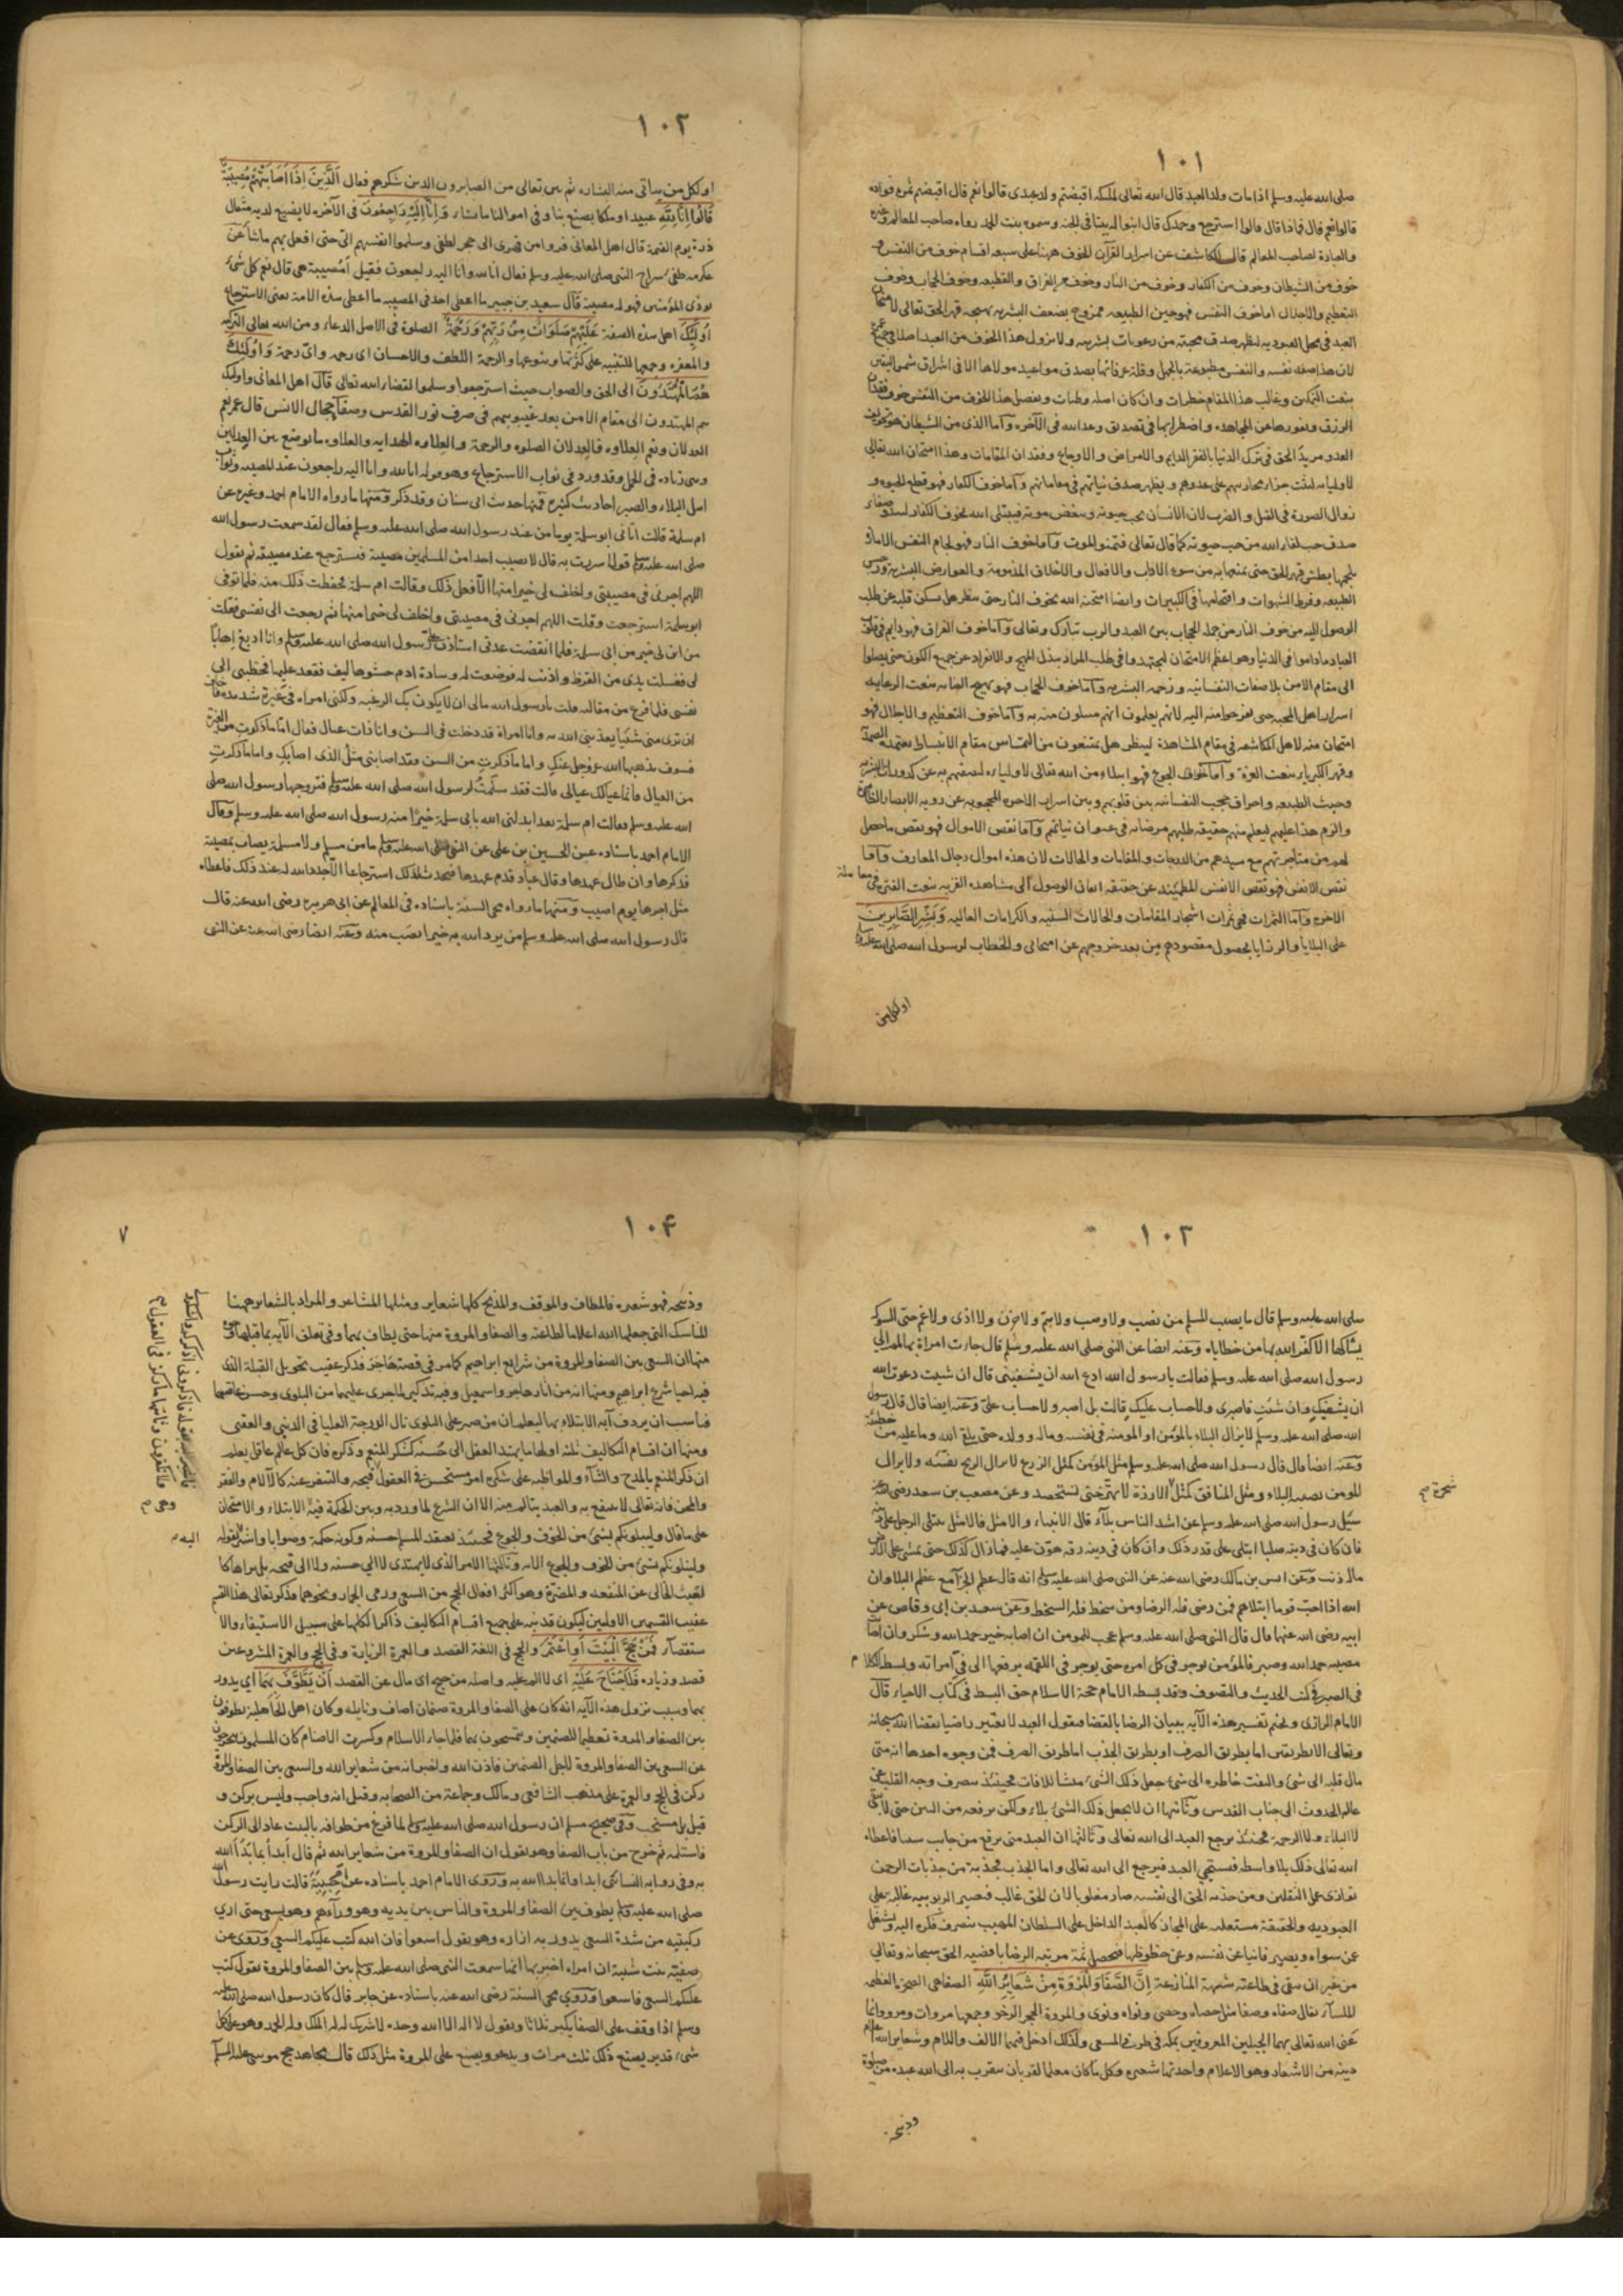 ١٠١
صلى الله عليه وسلم اذا مات ولد العبد قال الله تعالى لملئكته اقبضتم ولد عبدى قالوا نعم قال اقبضتم ثمرة فؤاده
قالوا نعم قال فماذا قال قالوا استرجع وحمدك قال ابنوا له بيتا فى الجنة وسموه بيت الحمد رواه صاحب المعالم وغيره
والعبارة لصاحب المعالم قال الكاشف عن اسرار القرآن الخوف ههنا على سبعة اقسام خوف من النفس و
خوف من الشيطان وخوف من الكفار وخوف من النار وخوف من الفراق والقطيعه وخوف الحجاب وخوف
التعظيم والاجلال اما خوف النفس فهو حين الطبيعه ممزوج بضعف البشريه يهيجه قهر الحق تعالى لامتحان
العبد فى محل العبوديه ليظهر صدق محبته من رعونات بشريته ولا يزول هذا الخوف من العبد اصلا
لان هذا صفة نفسه والنفس مطبوعة بالجهل وقلة عرفانها بصدق مواعيد مولاها الا فى اشراق شمس اليقين
بنعت التمكين وبغالب هذا المقام خطرات وان كان اصله وطبات وتفصيل هذا الخوف من النفس خوف فقدان
الرزق ونفورها عن المجاهده واضطرابها فى تصديق وعد الله فى الآخره وآما الذى من الشيطان هو تخويف
العدو مريد الحق فى ترك الدنيا بالفقر الدايم والامراض والاوجاع وفقدان المقامات وهذا امتحان الله تعالى
لاوليايه ليثبت جزاء محاربتهم على عدوهم ويظهر صدق نياتهم فى معاملتهم وآما خوف الكفار فهو قطع الحيوة و
زوال الصورة فى القتل والضرب لان الانسان يحب حيوته ويبغض موته فيبتلى الله بخوف الكفار
صدق حب لقاء الله من حب حيوته كما قال تعالى فتمنوا الموت وآما خوف النار فهو لجام النفس الامارة
يلجمها بطش قهر الحق حتى يمنعها به من سوء الاداب والافعال والاخلاق المذمومة والعوارض البشرية
الطبيعه وفرط الشهوات واقتحامها فى الكبيرات وايضا امتحنه الله بخوف النار حتى ينظر هل يسكن قلبه عن طلب
الوصول اليه من خوف النار من جملة الحجاب بين العبد والرب تبارك وتعالى وآما خوف الفراق فهو دايم فى قلوب
العباد ماداموا فى الدنيا وهو اعظم الامتحان ليجتهدوا فى طلب المراد ببذل المهج والانفراد عن جميع الكون حتى يصلوا
الى مقام الامن بلا صفات النفسانيه وزحمة البشريه وآما خوف الحجاب فهو يهيج العنايه بنعت الرعايه
اسرار اهل المحبه حتى يفرحوا منه اليه لانهم يعلمون انهم مسلون منه به وآما خوف التعظيم والاجلال فهو
امتحان منه لاهل المكاشفه فى مقام المشاهدة لينظر هل يمتنعون من التماس مقام الانبساط
وقهر الكبرياء بنعت العزة وآما خوف الجوع فهو ابتلاء من الله تعالى لاوليايه ليصفيهم به عن كدورات البشريه
وخبث الطبيعه واحراق حجب النفسانيه بين قلوبهم وبين اسرار الآخرة المحجوبه عن رويه الابصار الظاهرة
والزم هذا عليهم ليعلم منهم حقيقة طلبهم مرضاته فى عنوان نياتهم وآما نقص الاموال فهو نقص ما حصل
لهم من متاجرتهم مع سيدهم من الدرجات والمقامات والحالات لان هذه اموال رجال المعارف وآما
نقص الانفس فهو نقص الانفس المطمئنه عن حقيقة ايمان الوصول الى مشاهده القربه بنعت الفترة فى معاملة
الآخره وآما الثمرات فهى ثمرات اشجار المقامات والحالات السنيه والكرامات العاليه وَبَشِّرِ الصَّابِرِينَ
على البلايا والرزايا بحصول مقصودهم من بعد خروجهم عن امتحانى والخطاب لرسول الله صلى الله عليه وسلم
او لكل من
١٠٢
او لكل من يتأتى منه البشاره ثم بين تعالى من الصابرون الذين شكرهم فقال اَلَّذِينَ اِذَا اَصَابَتْهُمْ مُصِيبَةٌ
قَالُوا اِنَّا لِلّٰهِ عبيد او ملكا يصنع بنا وفى اموالنا ما يشاء وَاِنَّا اِلَيْهِ رَاجِعُونَ فى الآخره لا يضيع لديه مثقال
ذرة يوم القيمة قال اهل المعانى فروا من قهرى الى حجر لطفى وسلموا انفسهم الىّ حتى افعل بهم ما شأ عن
عكرمه طفى سراج النبى صلى الله عليه وسلم فقال انا لله وانا اليه راجعون فقيل أمصيبة هى قال نعم كل شئ
يوذى المؤمنين فهو له مصيبة قال سعيد بن جبير ما اعطى احد فى المصيبه ما اعطى هذه الامة يعنى الاسترجاع
اُولٰئِكَ اهل هذه الصفة عَلَيْهِمْ صَلَوَاتٌ مِنْ رَبِّهِمْ وَرَحْمَةٌ الصلوة فى الاصل الدعاء ومن الله تعالى التزكيه
والمغفره وجمعها للتنبيه على كثرتها وتنوعها والرحمة اللطف والاحسان اى رحمه واىّ رحمة وَاُولٰئِكَ
هُمُ الْمُهْتَدُونَ الى الحق والصواب حيث استرجعوا وسلموا لقضاء الله تعالى قال اهل المعانى واولئك
هم المهتدون الى مقام الامن بعد غيبوبتهم فى صرف نور القدس وصفاء جمال الانس قال عمر نعم
العدلان ونعم العلاوه فالعدلان الصلوه والرحمة والعلاوه الهدايه والعلاوه ما يوضع بين العدلين
وهى زياده فى الحمل وقد ورد فى ثواب الاسترجاع وهو قوله انا لله وانا اليه راجعون عند المصيبه وثواب
اهل البلاء والصبر احاديث كثيره فمنها حديث ابى سنان وقد ذكر ومنها ما رواه الامام احمد وغيره عن
ام سلمة قالت اتانى ابو سلمة يوما من عند رسول الله صلى الله عليه وسلم فقال لقد سمعت رسول الله
صلى الله عليه وسلم قولا سررت به قال لا يصيب احدا من المسلمين مصيبة فيسترجع عند مصيبته ثم يقول
اللهم اجرنى فى مصيبتى واخلف لى خيرا منها الا فعل ذلك وقالت ام سلمة فحفظت ذلك منه فلما توفى
ابو سلمة استرجعت وقلت اللهم اجرنى فى مصيبتى واخلف لى خيرا منها ثم رجعت الى نفسى فقلت
من اين لى خير من ابى سلمة فلما انقضت عدتى استاذن على رسول الله صلى الله عليه وسلم وانا ادبغ اهابا
لى فغسلت يدى من القرظ واذنت له فوضعت له وسادة ادم حشوها ليف فقعد عليها فخطبنى الى
نفسى فلما فرغ من مقاله قلت يا رسول الله مالى ان لا يكون بك الرغبه ولكنى امراه فىّ غيرة شديده فاخاف
ان ترى منى شئيا يعذبنى الله به وانا امراة قد دخلت فى السن وانا ذات عيال فقال اما ما ذكرت من الغيرة
فسوف يذهبها الله عز وجل عنك واما ما ذكرت من السن فقد اصابنى مثل الذى اصابك واما ما ذكرت
من العيال فانما عيالك عيالى قالت فقد سلّمتُ لرسول الله صلى الله عليه وسلم فتزوجها رسول الله صلى
الله عليه وسلم فقالت ام سلمة بعد ابدلنى الله بابى سلمة خيرًا منه رسول الله صلى الله عليه وسلم وقال
الامام احمد باسناده عن الحسين بن على عن النبى صلى الله عليه وسلم ما من مسلم ولا مسلمة يصاب بمصيبة
فذكرها وان طال عهدها وقال عباد قدم عهدها فيحدث لذلك استرجاعا الا جدد الله له عند ذلك فاعطاه
مثل اجرها يوم اصيب ومنها ما رواه محى السنة باسناده فى المعالم عن ابى هريره رضى الله عنه قال
قال رسول الله صلى الله عليه وسلم من يرد الله به خيرا يصب منه وعنه ايضا رضى الله عنه عن النبى
١٠٣
صلى الله عليه وسلم قال ما يصيب المسلم من نصب ولا وصب ولا هم ولا حزن ولا اذى ولا غم حتى الشوكة
يشاكها الا كفر الله بها من خطاياه وعنه ايضا عن النبى صلى الله عليه وسلم قال جاءت امراة بها لمم الى
رسول الله صلى الله عليه وسلم فقالت يا رسول الله ادع الله ان يشفينى قال ان شيت دعوت الله
ان يشفيك وان شئت فاصبرى ولا حساب عليك قالت بل اصبر ولا حساب علىّ وعنه ايضا قال قال رسول
الله صلى الله عليه وسلم لا يزال البلاء بالمؤمن او المومنة فى نفسه وماله وولده حتى يلقى الله وما عليه من خطيئة
وعنه ايضا قال قال رسول الله صلى الله عليه وسلم مثل المؤمن كمثل الزرع لا يزال الريح تفيئه ولا يزال
المومن يصيبه البلاء ومثل المنافق كمثل الارزة لا تهتز حتى تستحصد وعن مصعب بن سعد رضى الله عنه
شجرة صح
سئل رسول الله صلى الله عليه وسلم عن اشد الناس بلآء قال الانبياء والامثل فالامثل يبتلى الرجل على دينه
فان كان فى دينه صلبا ابتلى على قدر ذلك وان كان فى دينه رقه هوّن عليه فما زال كذلك حتى يمشى على الارض
ماله ذنب وعن انس بن مالك رضى الله عنه عن النبى صلى الله عليه وسلم انه قال عظم الجزآء مع عظم البلاء وان
الله اذا احب قوما ابتلاهم فمن رضى فله الرضا ومن سخط فله السخط وعن سعد بن ابى وقاص عن
ابيه رضى الله عنهما قال قال النبى صلى الله عليه وسلم عجب للمومن ان اصابه خير حمد الله وشكر وان اصابته
مصيبه حمد الله وصبر فالمؤمن يوجر فى كل امره حتى يوجر فى اللقمه يرفعها الى فى امراته وبسط الكلام
فى الصبر فى كتب الحديث والتصوف وقد بسطه الامام حجة الاسلام حق البسط فى كتاب الاحياء قال
الامام الرازى ولنختم تفسير هذه الآيه ببيان الرضا بالقضا فنقول العبد لا يصير راضيا بقضا الله سبحانه
وتعالى الا بطريقين اما بطريق الصرف او بطريق الجذب اما طريق الصرف فمن وجوه احدها انه متى
مال قلبه الى شئ والتفت خاطره الى شئ جعل ذلك الشئ منشا للافات فحينئذ يصرف وجه القلب عن
عالم الحدوث الى جناب القدس وثانيها ان لا يجعل ذلك الشئ بلاء ولكن يرفعه من البين حتى لا يبقى
لا البلاء ولا الرحمة فحينئذ يرجع العبد الى الله تعالى وثالثها ان العبد متى يرقع من جانب سببا فاعطاه
الله تعالى ذلك بلا واسطه فيستحى العبد فيرجع الى الله تعالى واما الجذب فجذبة من جذبات الرحمن
توازى عمل الثقلين ومن جذبه الحق الى نفسه صار مغلوبا لان الحق غالب فيصير الربوبيه غالبه على
العبوديه والحقيقة مستعليه على المجاز كالعبد الداخل على السلطان المهيب ينصرف فكره اليه ويشتغل
عن سواه ويصير فانيا عن نفسه وعن حظوظها فيحصل ثمة مرتبه الرضا باقضيه الحق سبحانه وتعالى
من غير ان يبقى فى طاعته شبهة المنازعة اِنَّ الصَّفَا وَالْمَرْوَةَ مِنْ شَعَائِرِ اللّٰهِ الصفا هى الصخرة العظيمه
الملسآء يقال صفاه وصفا مثل حصاه وحصى ونواه ونوى والمروة الحجر الرخو وجمعها مروات ومرو وانما
عَنى الله تعالى بهما الجبلين المعروفين بمكه فى طرفى المسعى ولذلك ادخل فيهما الالف واللام وشعاير الله اعلام
دينه من الاشعار وهو الاعلام واحدتها شعيره وكل ما كان معلما لقربان يتقرب به الى الله عبده من صلوة
وذبيحه
١٠۴
٧
وذبيحه فهو شعيره فالمطاف والموقف والمذبح كلها شعاير ومثلها المشاعر والمراد بالشعاير ههنا
المناسك التى جعلها الله اعلاما لطاعته والصفا والمروة منها حتى يطاف بهما وفى تعلق الآيه بما قبلها وجوه
منها ان السعى بين الصفا والمروة من شرايع ابراهيم كما مر فى قصة هاجر فذكر عقيب تحويل القبلة الذى
فيه احيا شرع ابراهيم ومنها انه من آثار هاجر واسمعيل وفيه تذكير لما جرى عليهما من البلوى وحسن عاقبتهما
فناسب ان يردف آية الابتلاء بها ليعلم ان من صبر على البلوى نال الدرجة العليا فى الدنيى والعقبى
ومنها ان اقسام التكاليف ثلثه اولها ما يهتدى العقل الى حسنه كشكر المنعم وذكره فان كل عاقل يعلم
ان ذكر المنعم بالمدح والثنآء والمواظبه على شكره امر مستحسن فى العقول قبيحه والتنفر عنه كالآلام والفقر
والمحن فانه تعالى لا ينتفع به والعبد يتالم منه الا ان الشرع لما ورد به وبين الحكمة فيه الابتلاء والامتحان
على ما قال ولنبلونكم بشئ من الخوف والجوع فحينئذ يعتقد المسلم حسنه وكونه حكمة وصوابا واشار بقوله
ولنبلونكم بشئ من الخوف والجوع الايه وثالثها الامر الذى لا يهتدى لا الى حسنه ولا الى قبحه بل يراها كا
لعبث الخالى عن المنفعه والمضرّة وهو اكثر افعال الحج من السعى ورمى الجمار ونحوهما فذكر تعالى هذا القسم
عقيب القسمين الاولين ليكون قد نبه على جميع اقسام التكاليف ذاكرا لكلها على سبيل الاستيفاء والا
ستقصآء فَمَنْ حَجَّ الْبَيْتَ اَوِ اعْتَمَرَ والحج فى اللغة القصد والعمرة الزيارة وفى الحج والعمرة المشروعين
قصد وزياره فَلَا جُنَاحَ عَلَيْهِ اى لا اثم عليه واصله من جنح اى مال عن القصد اَنْ يَطَّوَّفَ بِهِمَا اى يدور
بهما وسبب نزول هذه الآيه انه كان على الصفا والمروة صنمان اصاف ونايله وكان اهل الجاهليه يطوفون
بين الصفا والمروة تعظيما للصنمين ويتمسحون بهما فلما جاء الاسلام وكسرت الاصنام كان المسلمون يتحرجون
عن السعى بين الصفا والمروة لاجل الصنمين فاذن الله واخبر انه من شعاير الله والسعى بين الصفا والمروة
ركن فى الحج والعمرة على مذهب الشافعى ومالك وجماعة من الصحابه وقيل انه واجب وليس بركن و
قيل بل مستحب وفى صحيح مسلم ان رسول الله صلى الله عليه وسلم لما فرغ من طوافه بالبيت عاد الى الركن
فاستلمه ثم خرج من باب الصفا وهو يقول ان الصفا والمروة من شعاير الله ثم قال أبدأ بما بدأ الله
به وفى روايه النسائى ابدا وانما بدا الله به وروى الامام احمد باسناده عن حبيبة قالت رايت رسول الله
صلى الله عليه وسلم يطوف بين الصفا والمروة والناس بين يديه وهو ورآءهم وهو يسعى حتى ارى
ركبتيه من شدة السعى يدور به ازاره وهو يقول اسعوا فان الله كتب عليكم السعى وروى عن
صفية بنت شيبة ان امراه اخبرتها انها سمعت النبى صلى الله عليه وسلم بين الصفا والمروة يقول كتب
عليكم السعى فاسعوا وروى محى السنة رضى الله عنه باسناده عن جابر قال كان رسول الله صلى الله عليه
وسلم اذا وقف على الصفا يكبر ثلاثا ويقول لا اله الا الله وحده لا شريك له له الملك وله الحمد وهو على كل
شئ قدير يصنع ذلك ثلث مرات ويدعو ويصنع على المروة مثل ذلك قال مجاهد حج موسى عليه السلم
بقوله فاذكرونى اذكركم واشكروا
ولا تكفرون وثانيها ما ركز فى العقول صح
وهى صح
اليه صح